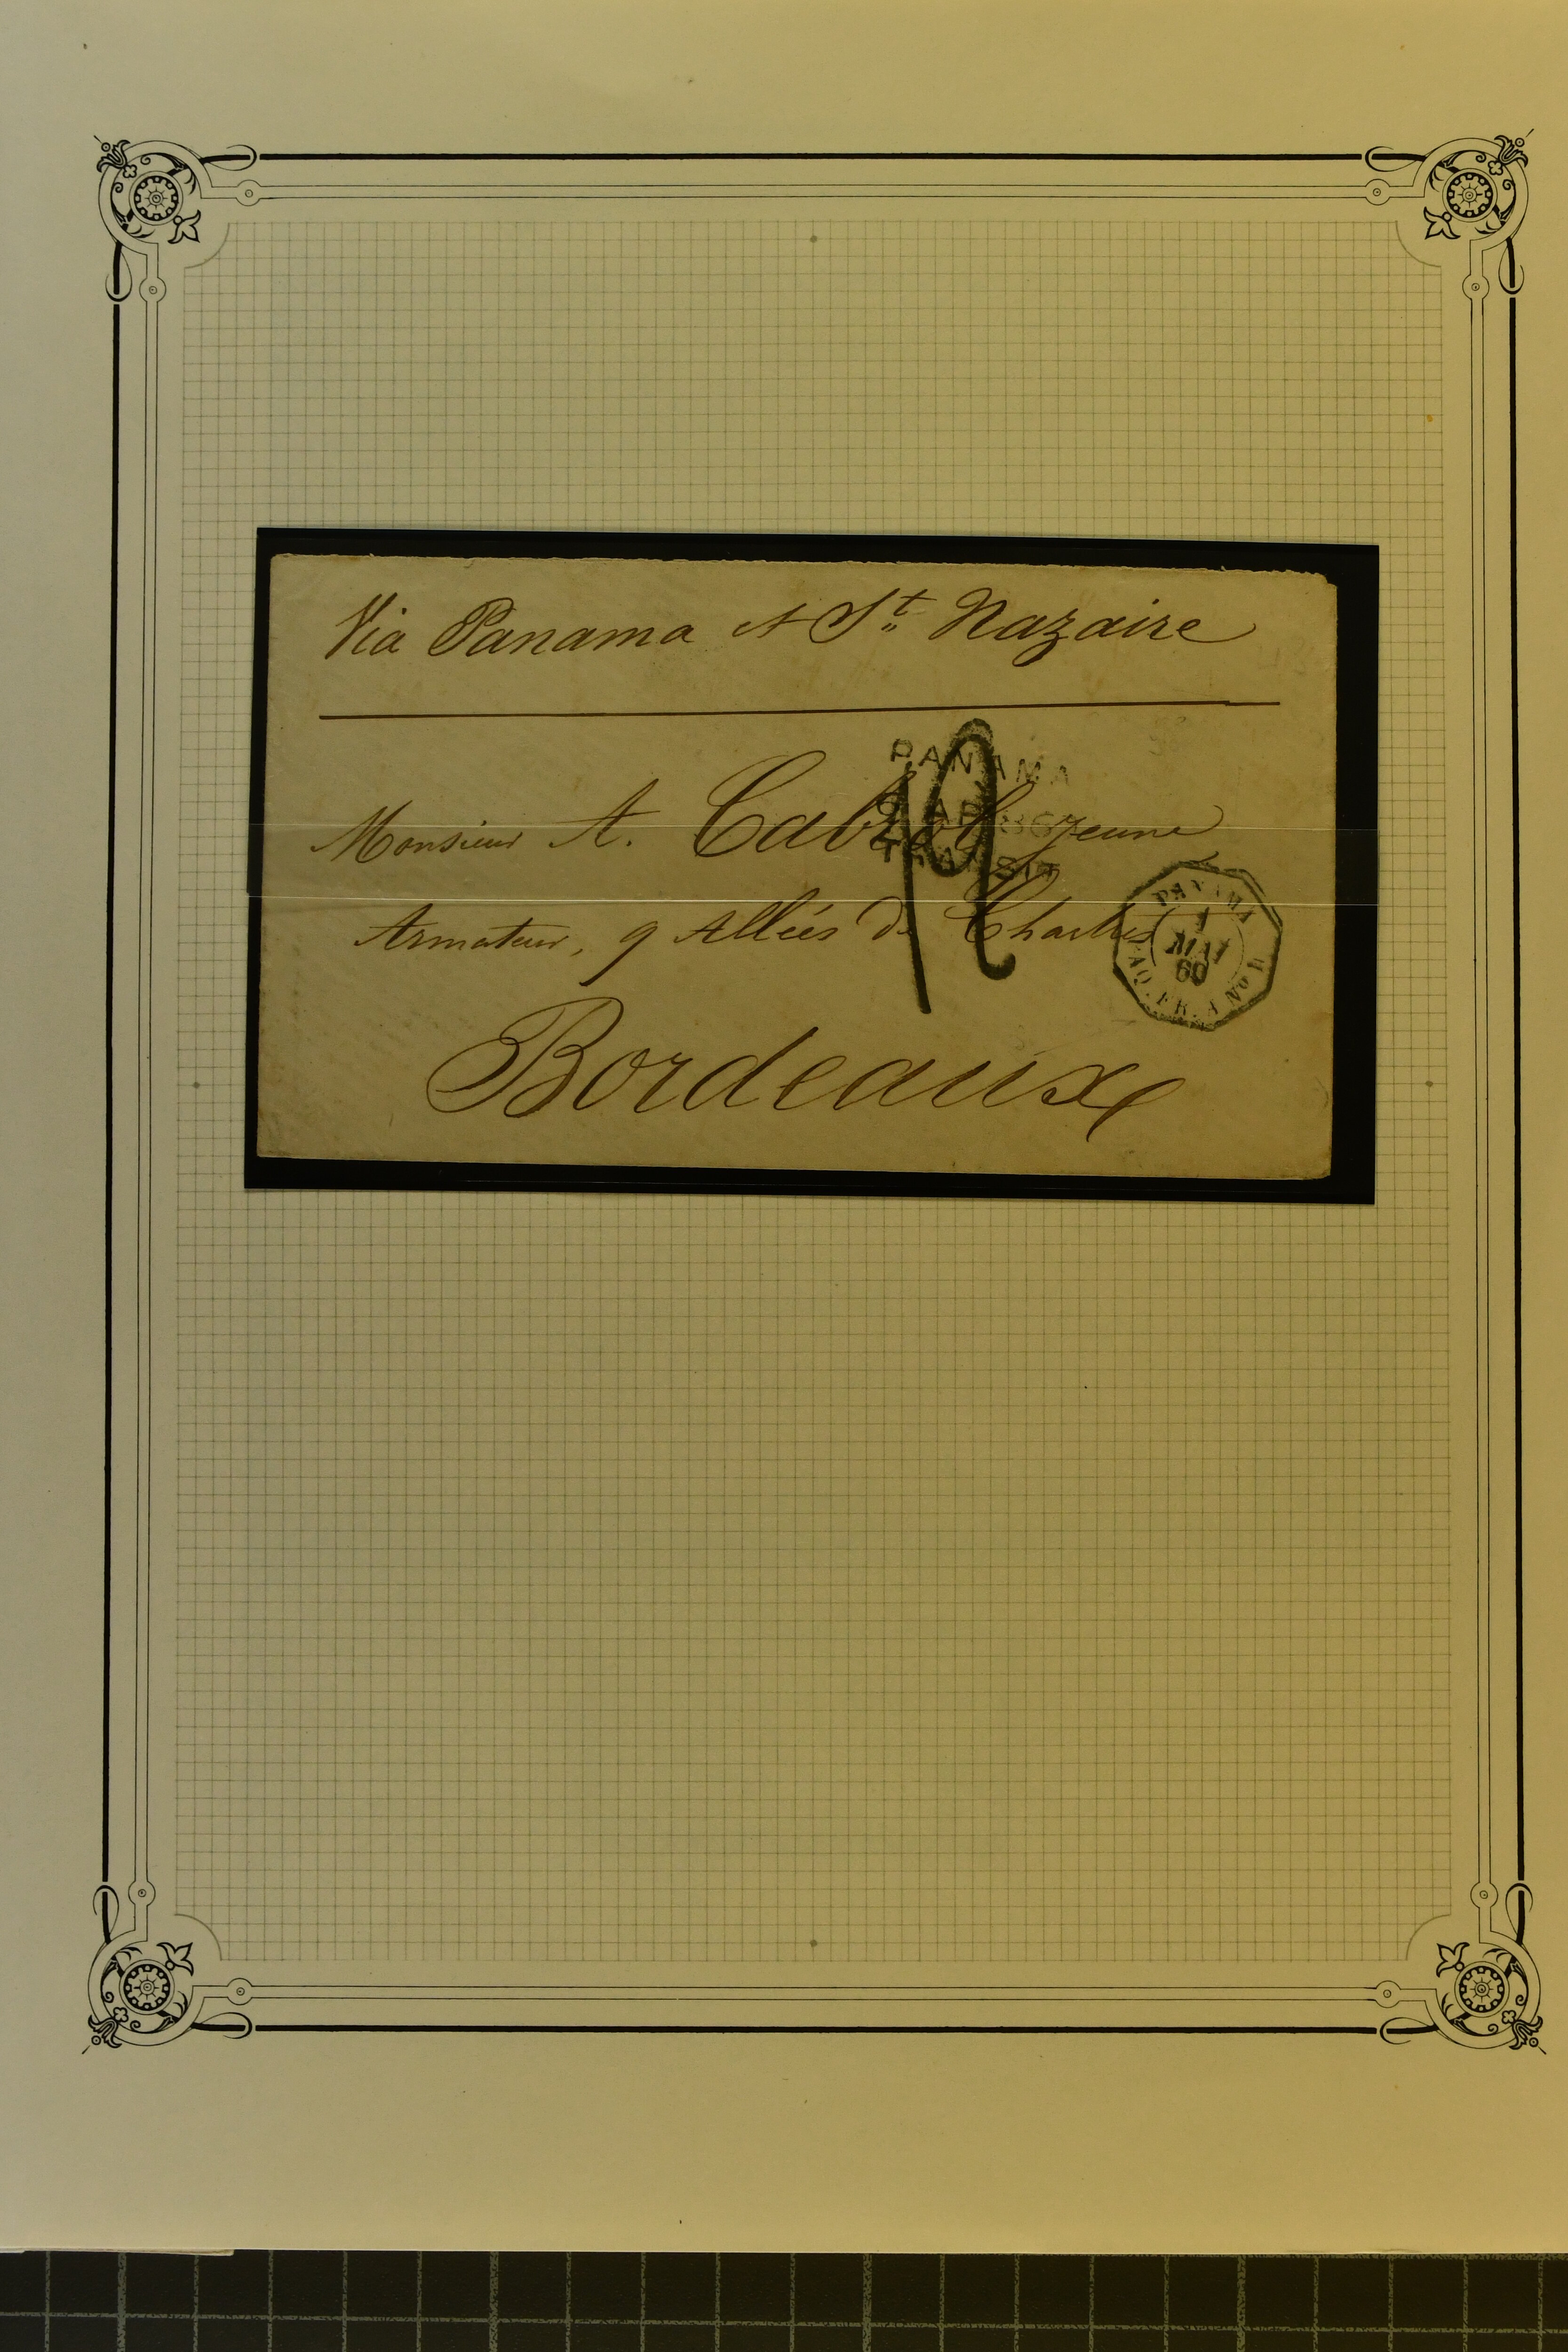 Via Panama et St. Nazaire
PANAMA
TRANSIT
Monsieur A. Cabrol jeune
Armateur, 9 Allées de Chartres
PANAMA
1
MAI
PAQ. FR. A No
Bordeaux
12